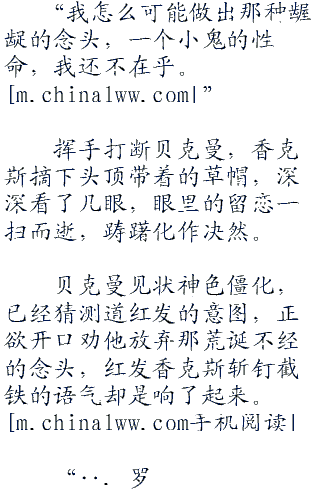 “我怎么可能做出那种龌
龊的念头，一个小鬼的性
命，我还不在乎。
[m.chinalww.com|”
挥手打断贝克曼，香克
斯摘下头顶带着的草帽，深
深看了几眼，眼里的留恋一
扫而逝，踌躇化作决然。
贝克曼见状神色僵化，
已经猜测道红发的意图，正
欲开口劝他放弃那荒诞不经
的念头，红发香克斯斩钉截
铁的语气却是响了起来。
[m.chinalww.com手机阅读|
“··. 罗